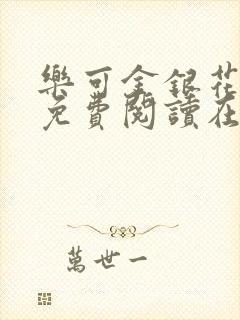 樂可金銀花
免費閱讀在
萬世一